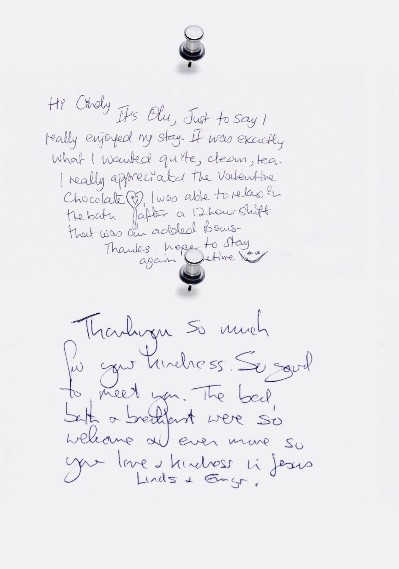 Hi Cindy
It's Olu, Just to say I
really enjoyed my stay. It was exactly
what I wanted quite, clean, tea.
I really appreciated the Valentine
Chocolate, I was able to relax in
the bath after a 12 hour shift
that was an added bonus-
Thanks hope to stay
again
Thankyou so much
for your kindness. So good
to meet you. The bed,
bath & breakfast were so
welcome & even more so
your love & kindness in Jesus
Linds &